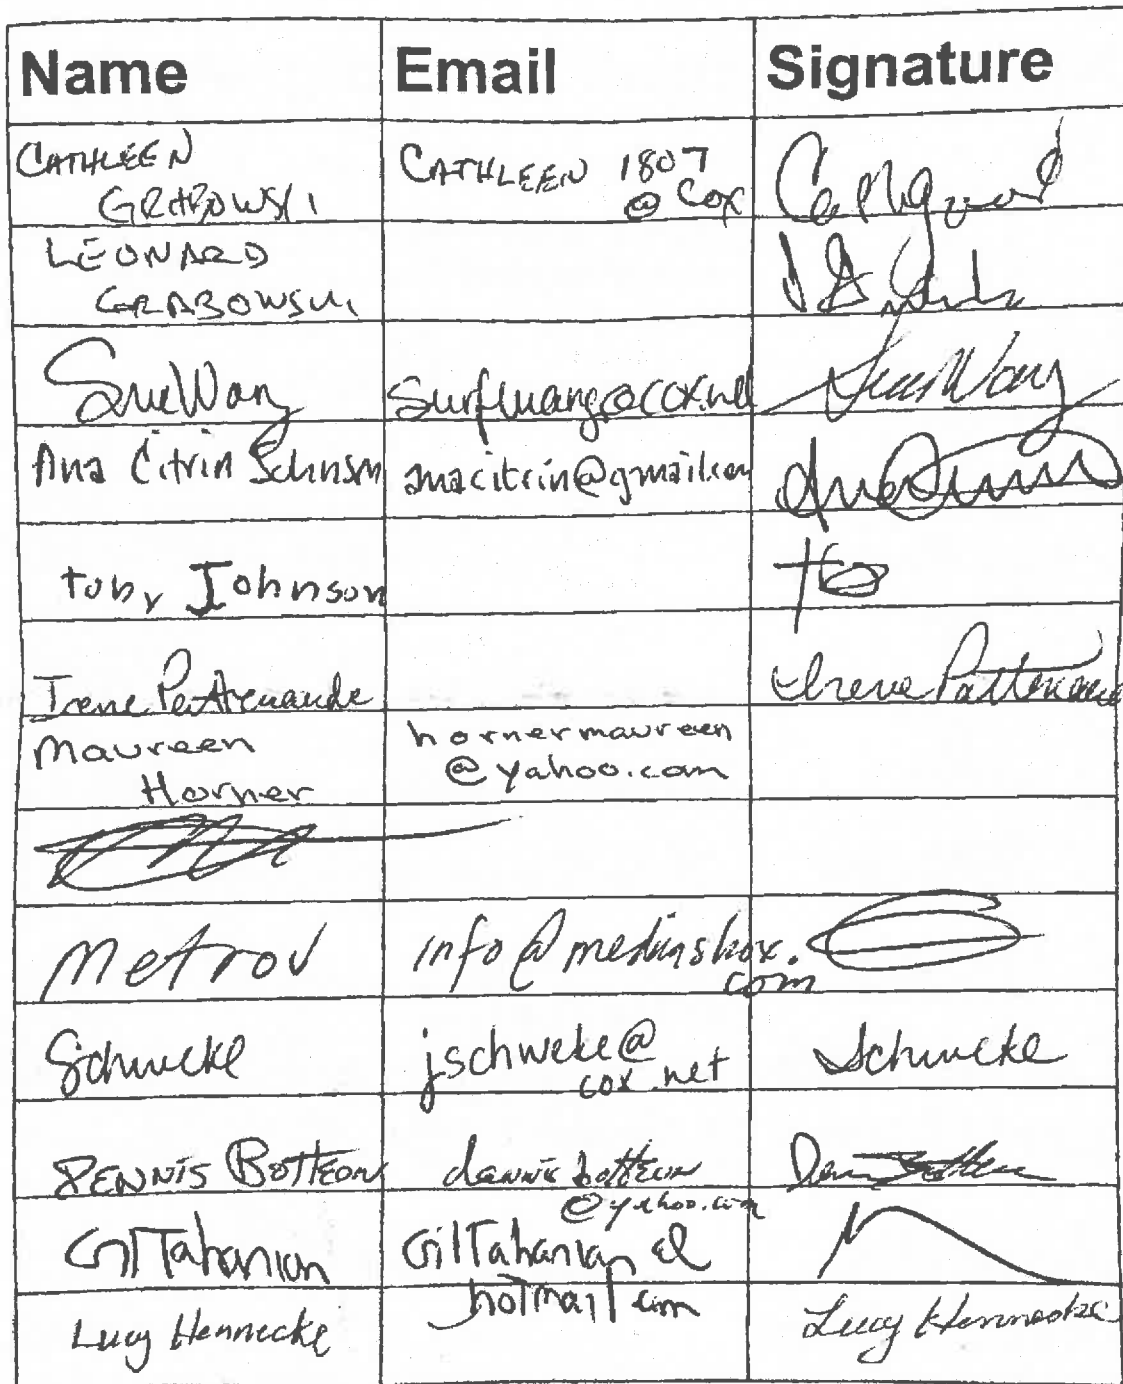 Name Email Signature
CATHLEEN
GRABOWSKI
CATHLEEN 1807
@ Cox
LEONARD
GRABOWSKI
Sue Wang
surfwang@cox.net
Sue Wang
Ana Citrin Johnson
anacitrin@gmail.com
toby Johnson
Irene Pattenaude
Irene Pattenaude
Maureen
Horner
hornermaureen
@yahoo.com
Metrov
info@mediasbox.
com
Schweke
jschweke@
cox.net
Schweke
DENNIS BOTTEON
dennis botteon
@yahoo.com
Gil Tahanian
GilTahanian@
hotmail com
Lucy Hennecke
Lucy Hennecke